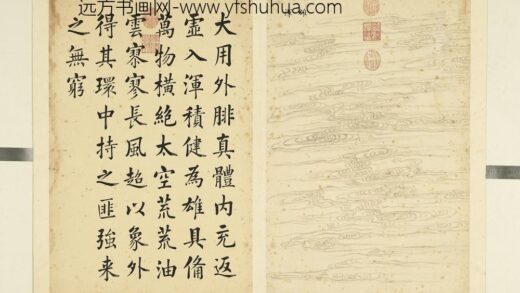 远方书画网-www.yfshuhua.com
大用外腓真體内充返
虛入渾積健為雄具俻
萬物橫絶太空荒荒油
雲寥寥長風超以象外
得其環中持之匪強来
之無窮